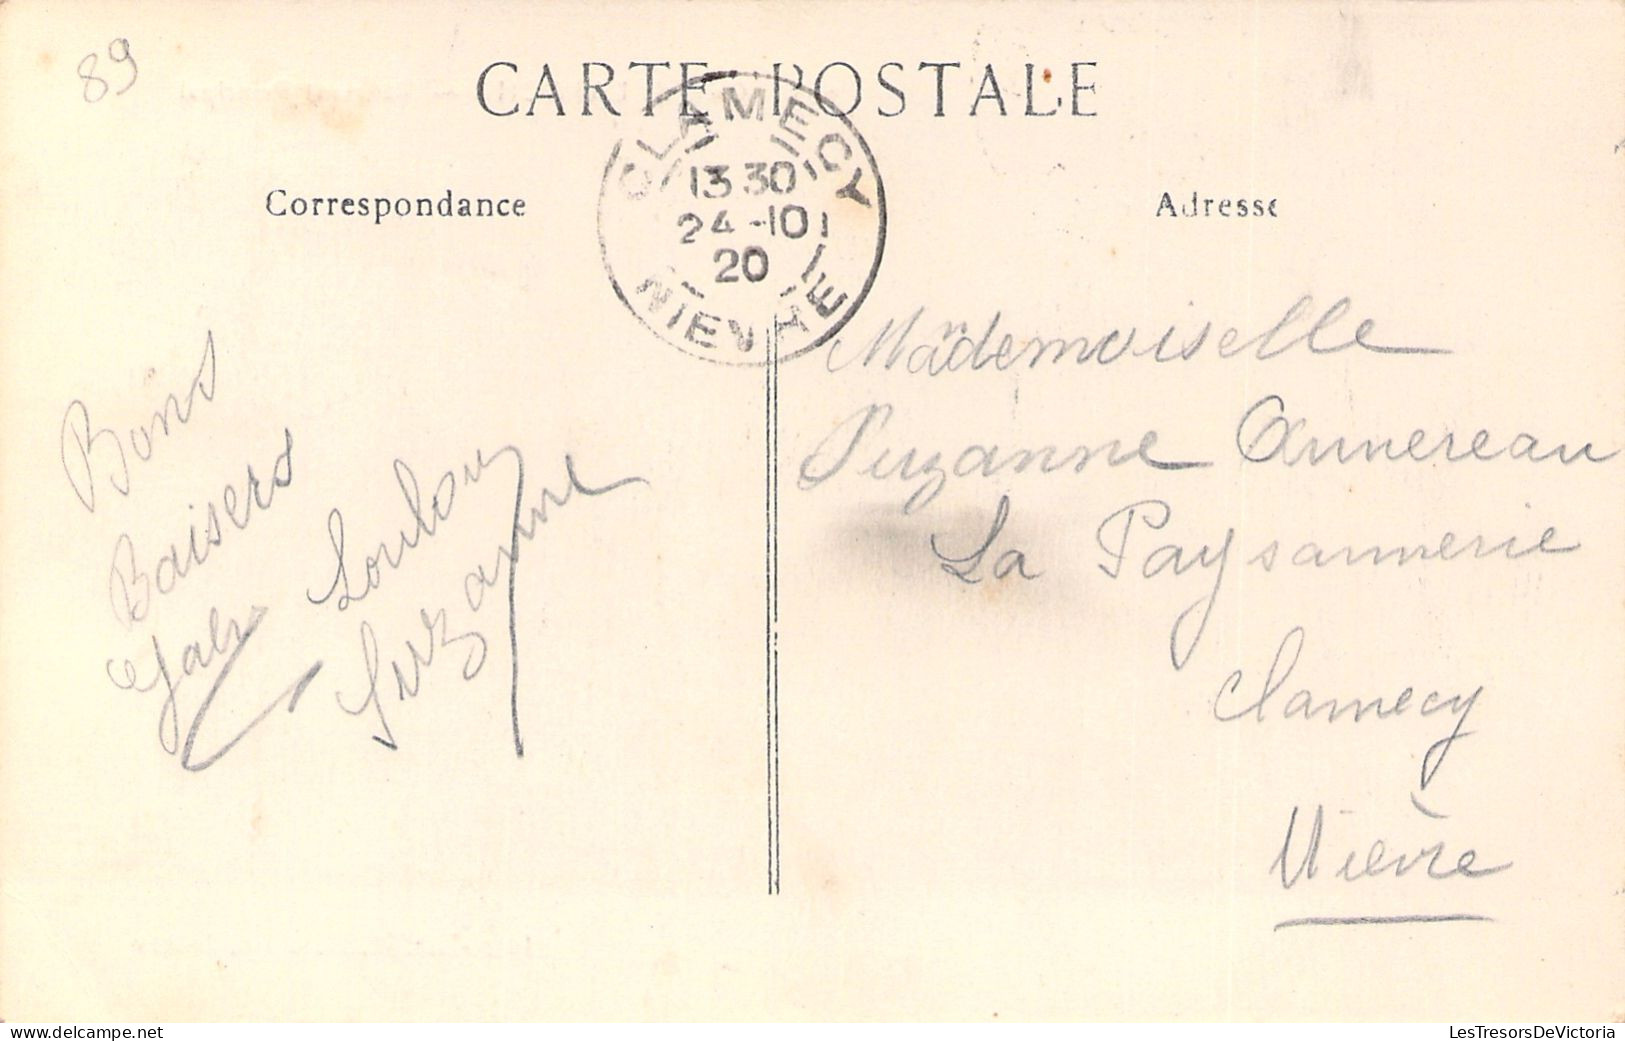 89
CARTE POSTALE
CLAMECY
13 30
24 -10
20
NIEVRE
Correspondance
Adresse
Bons
Baisers
Gaby Loulou
Suzanne
Mademoiselle
Suzanne Annereau
La Paysannerie
Clamecy
Nièvre
LesTresorsDeVictoria